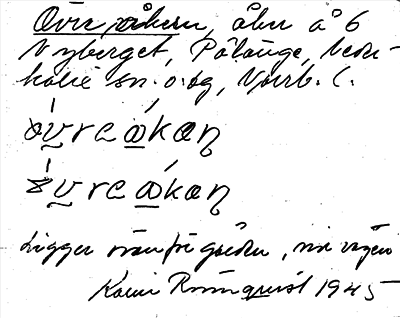 Övre åkern, åker å 6
Nyberget, Pålänge, Neder-
kalix sn. o. sg, Norrb. l.
övrcåkaņ
övrcåkaņ
Ligger ovanför gården, vid vägen
Karin Rönnquist 1945